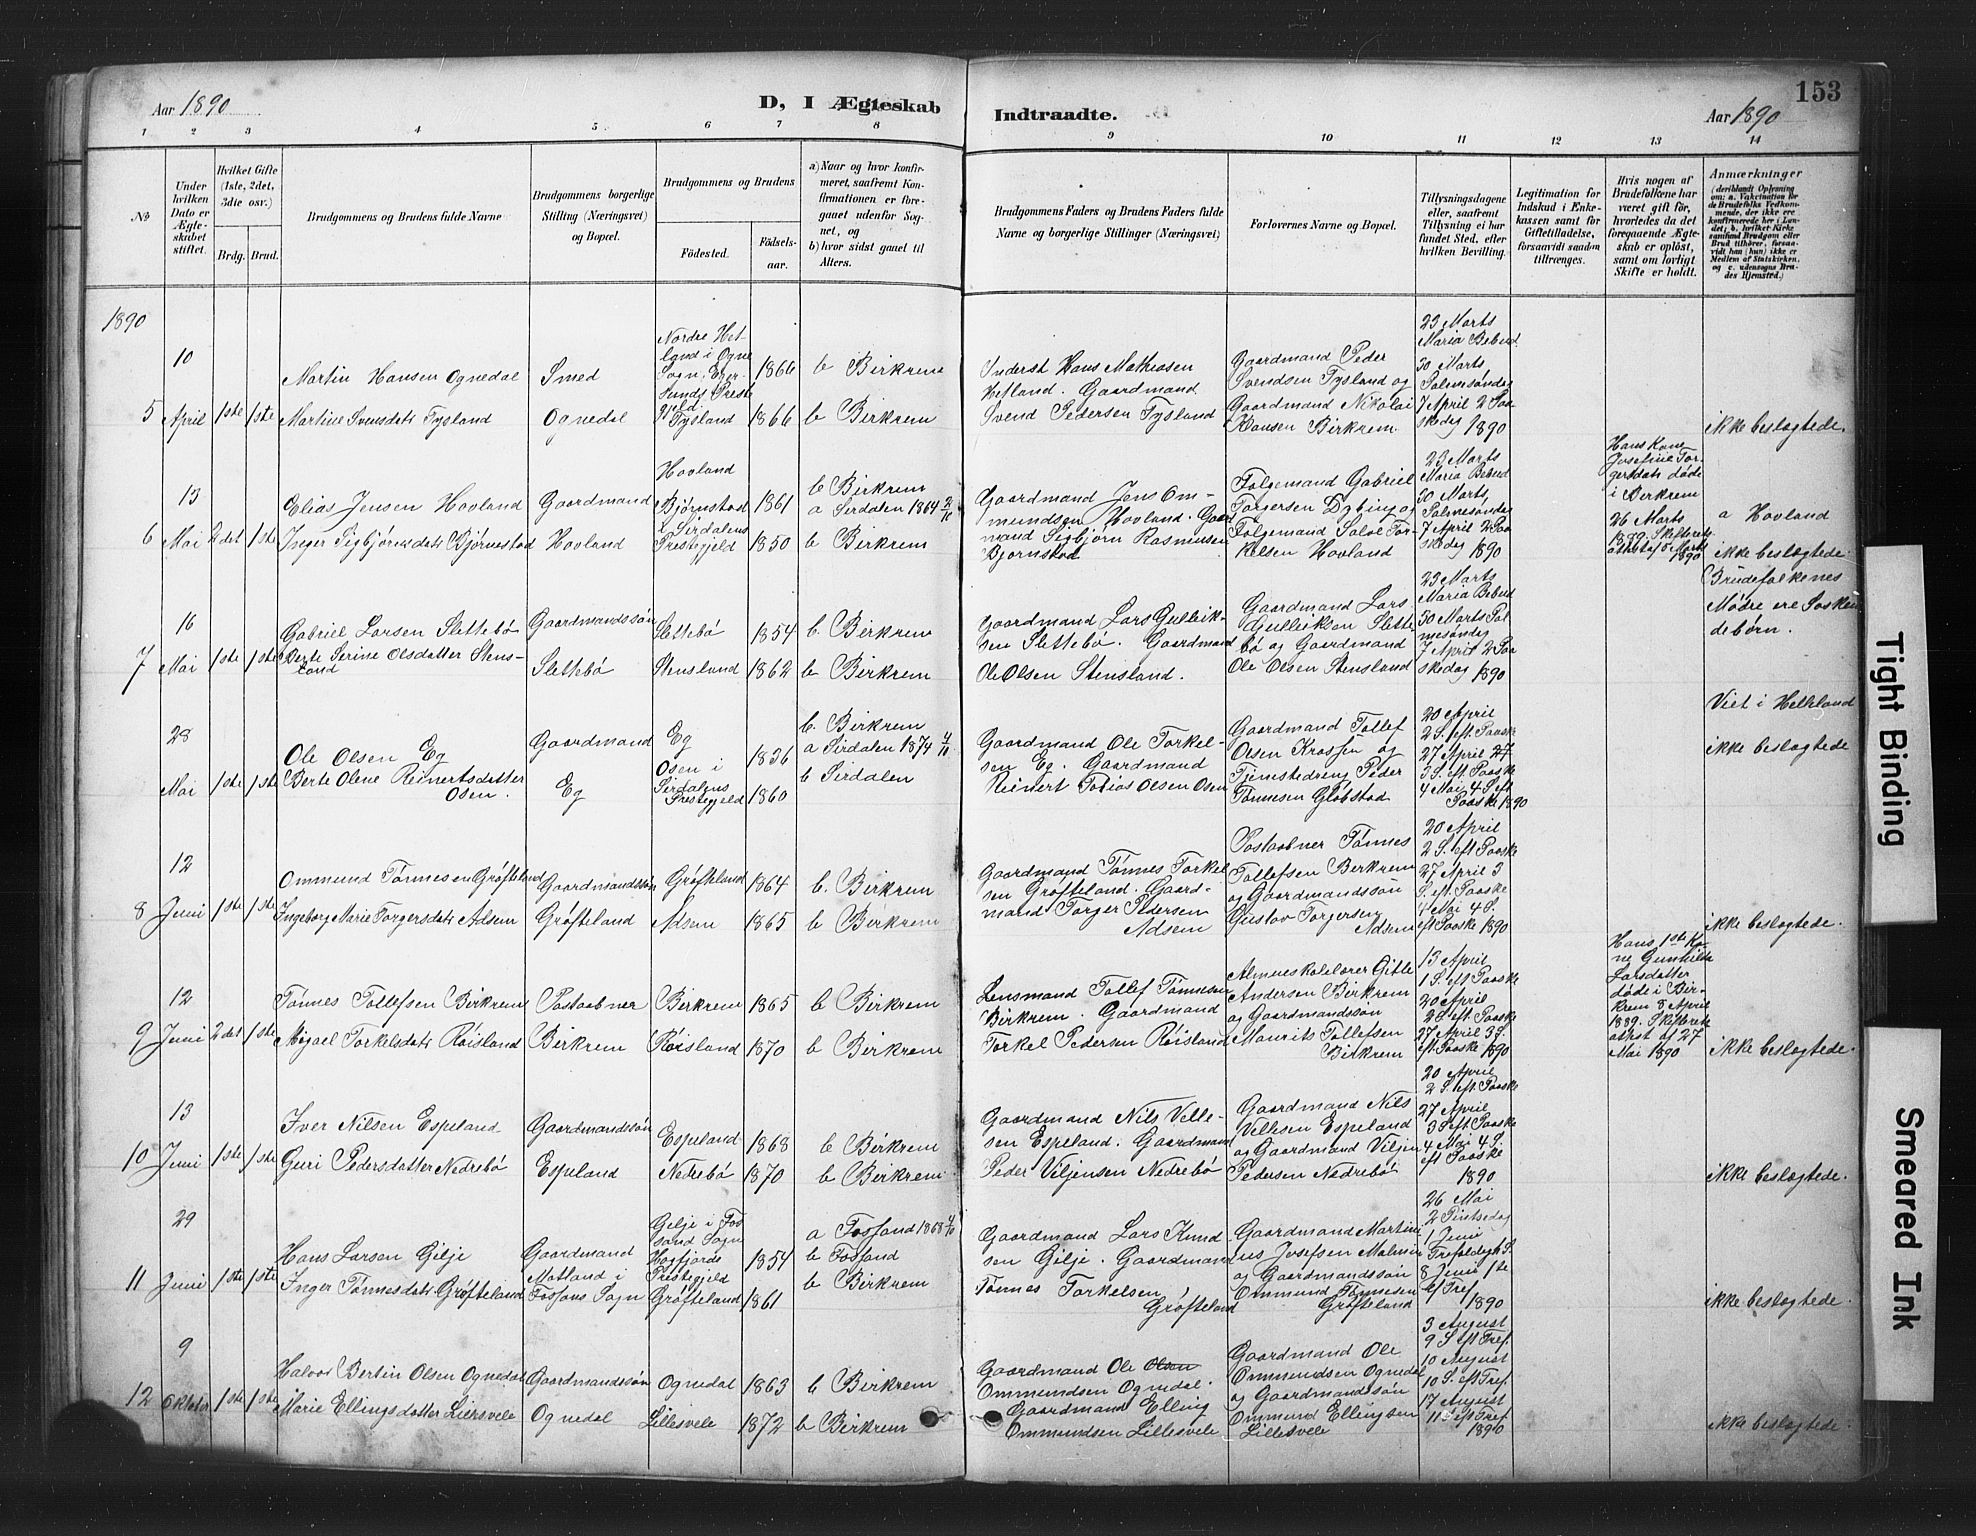 153
Aar 1890
D, I Ægteskab
Indtraadte.
Aar 1890
1 2 3 4 5 6 7 8 9 10 11 12 13 14
No
Under hvilken Dato er Ægteskabet stiftet.
Hvilket Gifte (1ste, 2det, 3die osv.)
Brdg. Brud.
Brudgommens og Brudens fulde Navne
Brudgommens borgerlige Stilling (Næringsvei) og Bopæl.
Brudgommens og Brudens
Fødested.
Fødselsaar.
a) Naar og hvor konfirmeret, saafremt Konfirmationen er foregaaet udenfor Sognet, og
b) hvor sidst gaaet til Alters.
Brudgommens Faders og Brudens Faders fulde Navne og borgerlige Stillinger (Næringsvei)
Forlovernes Navne og Bopæl.
Tillysningsdagene eller, saafremt Tillysning ei har fundet Sted, efter hvilken Bevilling.
Legitimation for Indskud i Enkekassen samt for Giftetilladelse, forsaavidt saadan tiltrænges.
Hvis nogen af Brudefolkene har været gift før, hvorledes da det foregaaende Ægteskab er opløst, samt om lovligt Skifte er holdt.
Anmærkninger
1890
5
10 April
1ste 1ste
Martin Hansen Ognedal
Martine Svensdatr Tysland
Smed
Ognedal
Nordre Hetland i Ogne Sogn, Egersunds Prestegjeld
Tysland
1866
1866
b Birkrem
b Birkrem
Inderst Hans Mathiasen
Hetland. Gaardmand
Svend Pedersen Tysland
Gaardmand Peder
Svendsen Tysland og
Gaardmand Nikolai
Hansen Birkrem.
23 Marts
Maria Bebud.
30 Marts
Palmesøndag
7 April 2 Paaskedag 1890
ikke beslægtede.
6
13 Mai
2det 1ste
Elias Jensen Hovland
Inger Sigbjørnsdatr Bjørnestad
Gaardmand
Hovland
Hovland
Bjørnstad i Sirdalens Prestegjeld
1861
1850
b Birkrem
a Sirdalen 1864 2/10
b Birkrem
Gaardmand Jens Ommundsen Hovland. Gaardmand Sigbjørn Rasmussen
Bjørnstad
Følgemand Gabriel
Torgersen Dybing og
Følgemand Salve Torkelsen Hovland
23 Marts
Maria Bebud
30 Marts
Palmesøndag
7 April 2 Paaskedag 1890
Hans Kone
Josefine Torgersdatr døde
i Birkrem
26 Marts
1889. Skifterets
attest af 5 Marts
1890
a Hovland
ikke beslægtede.
7
16 Mai
1ste 1ste
Gabriel Larsen Slettebø
Berte Serine Olsdatter Stensland
Gaardmandssøn
Slettebø
Slettebø
Stensland
1854
1862
b. Birkrem
b Birkrem
Gaardmand Lars Gulleiksen Slettebø. Gaardmand
Ole Olsen Stensland.
Gaardmand Lars
Gulleiksen Slettebø og Gaardmand
Ole Olsen Stensland
23 Marts
Maria Bebud
30 Marts Palmesøndag
7 April 2 Paaskedag 1890
Brudefolkenes
Mødre ere Søskendebørn.
28 Mai
1ste 1ste
Ole Olsen Eg
Berte Olene Reinertsdatter
Osen.
Gaardmand
Eg
Eg
Osen i
Sirdalens
Prestegjeld
1836
1860
b. Birkrem
a Sirdalen 1874 4/10
b Sirdalen
Gaardmand Ole Torkelsen Eg. Gaardmand
Reinert Tobias Olsen Osen
Gaardmand Tollef
Olsen Krossen og
Tjenestedreng Peder
Tønnesen Gløbstad
20 April
2 S. eft Paaske
27 April
3 S. eft Paaske
4 Mai 4 S eft
Paaske 1890
Viet i Helleland
ikke beslægtede
8
12 Juni
1ste 1ste
Ommund Tønnesen Grøfteland
Ingeborg Marie Torgersdatr Adsem
Gaardmandssøn
Grøfteland
Grøfteland
Adsem
1864
1865
b. Birkrem
b Birkrem
Gaardmand Tønnes Torkelsen Grøfteland. Gaardmand Torger Pedersen
Adsem
Postaabner Tønnes
Tollefsen Birkrem
og Gaardmandssøn
Gustav Torgersen
Adsem
20 April
2 S. eft Paaske
27 April 3
S. eft. Paaske
4 Mai 4 S.
eft Paaske 1890
ikke beslægtede.
9
12 Juni
2det 1ste
Tønnes Tollefsen Birkrem
Migael Torkelsdatr Røisland
Postaabner
Birkrem
Birkrem
Røisland
1865
1870
b Birkrem
b Birkrem
Lensmand Tollef Tønnesen
Birkrem. Gaardmand
Torkel Pedersen Røisland
Almueskolelærer Gitle
Andersen Birkrem
og Gaardmandssøn
Maurits Tollefsen
Birkrem
13 April
1 S. eft Paaske
20 April
2 S. eft Paaske
27 April 3 S.
eft Paaske 1890
Hans 1ste Kone Gunhilde
Larsdatter
døde i Birkrem 8 April
1889. Skifterets
attest af 27
Mai 1890
ikke beslægtede.
10
13 Juni
1ste 1ste
Iver Nilsen Espeland
Guri Pedersdatter Nedrebø
Gaardmandssøn
Espeland
Espeland
Nedrebø
1868
1870
b Birkrem
b Birkrem
Gaardmand Nils Villesen Espeland. Gaardmand
Peder Viljensen Nedrebø
Gaardmand Nils
Villesen Espeland
og Gaardmand Viljen
Pedersen Nedrebø
20 April
2 S. eft. Paaske
27 April
3 S eft Paaske
4 Mai 4 S.
eft Paaske
1890
ikke beslægtede.
11
29 Juni
1ste 1ste
Hans Larsen Gilje
Inger Tønnesdatr Grøfteland
Gaardmand
Motland i
Fossans Sogn
Gilje i Fossand Sogn
Høgfjords
Prestegjeld
Grøfteland
1854
1861
a Fossand 1868 4/10
b Fossand
b Birkrem
Gaardmand Lars Knudsen Gilje. Gaardmand
Tønnes Torkelsen
Grøfteland
Gaardmand Martinius Josefsen Malmin
og Gaardmandssøn
Ommund Tønnesen
Grøfteland
26 Mai
2 Pintsedag
1 Juni
Trefoldigh S.
8 Juni 1ste
ef Tref
1890
ikke beslægtede.
12
9 Oktober
1ste 1ste
Halvor Bertin Olsen Ognedal
Marie Ellingsdatter Lillesvele
Gaardmandssøn
Ognedal
Ognedal
Lillesvele
1863
1872
b Birkrem
b Birkrem
Gaardmand Ole Olsen
Ommundsen Ognedal.
Gaardmand Elling
Ommundsen Lillesvele
Gaardmand Ole
Ommundsen Ognedal
og Gaardmandssøn
Ommund Ellingsen
Lillesvele
3 August
9 S eft Tref.
10 August
10 S. eft Tref.
17 August
11 S eft Tref.
1890
ikke beslægtede.
Tight Binding
Smeared Ink